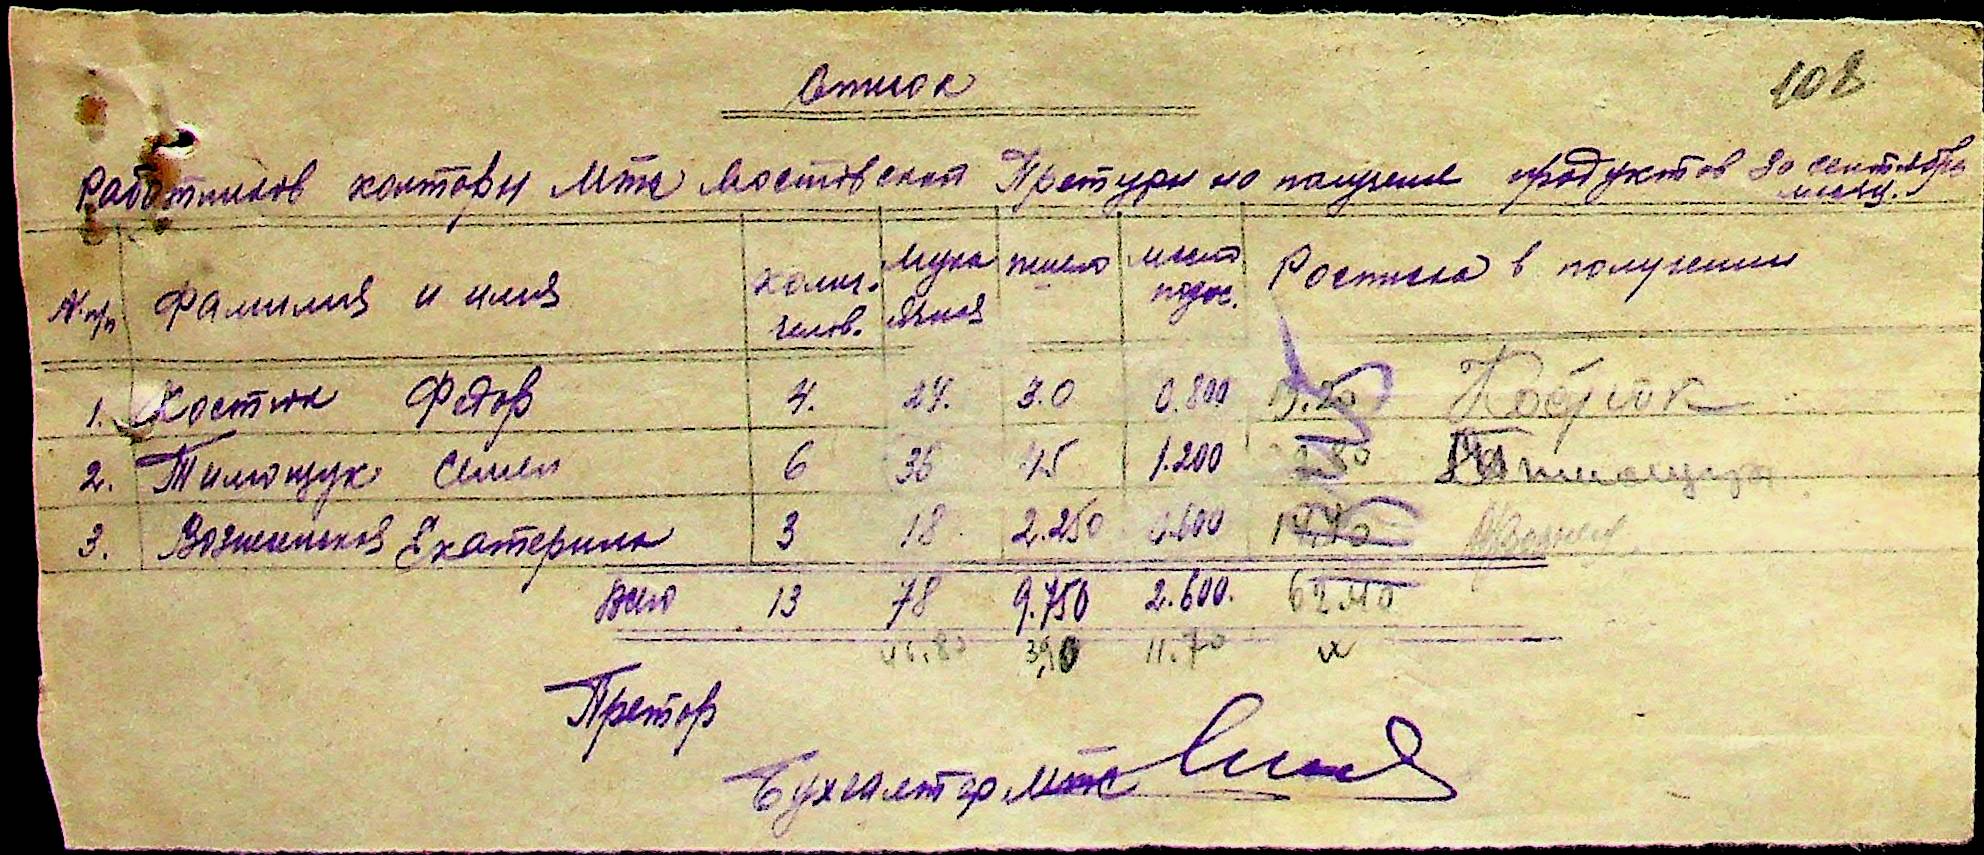 Список
108
Работников конторы Мтс Мостовской Претуры на получение продуктов за сентябрь месяц.
№ п/п Фамилия и имя колич. челов. Мука ячная пшено масло подс. Росписка в получении
1. Костюк Федор 4. 24. 3.0 0.800 19.20 Костюк
2. Тимощук Семен 6 36 4.5 1.200 28.80 Тимощук
3. Вознесенская Екатерина 3 18 2.250 0.600 14.40
Всего 13 78 9.750 2.600. 62.40
46.80 3,90 11.70
Претор
Бухгалтер Мтс